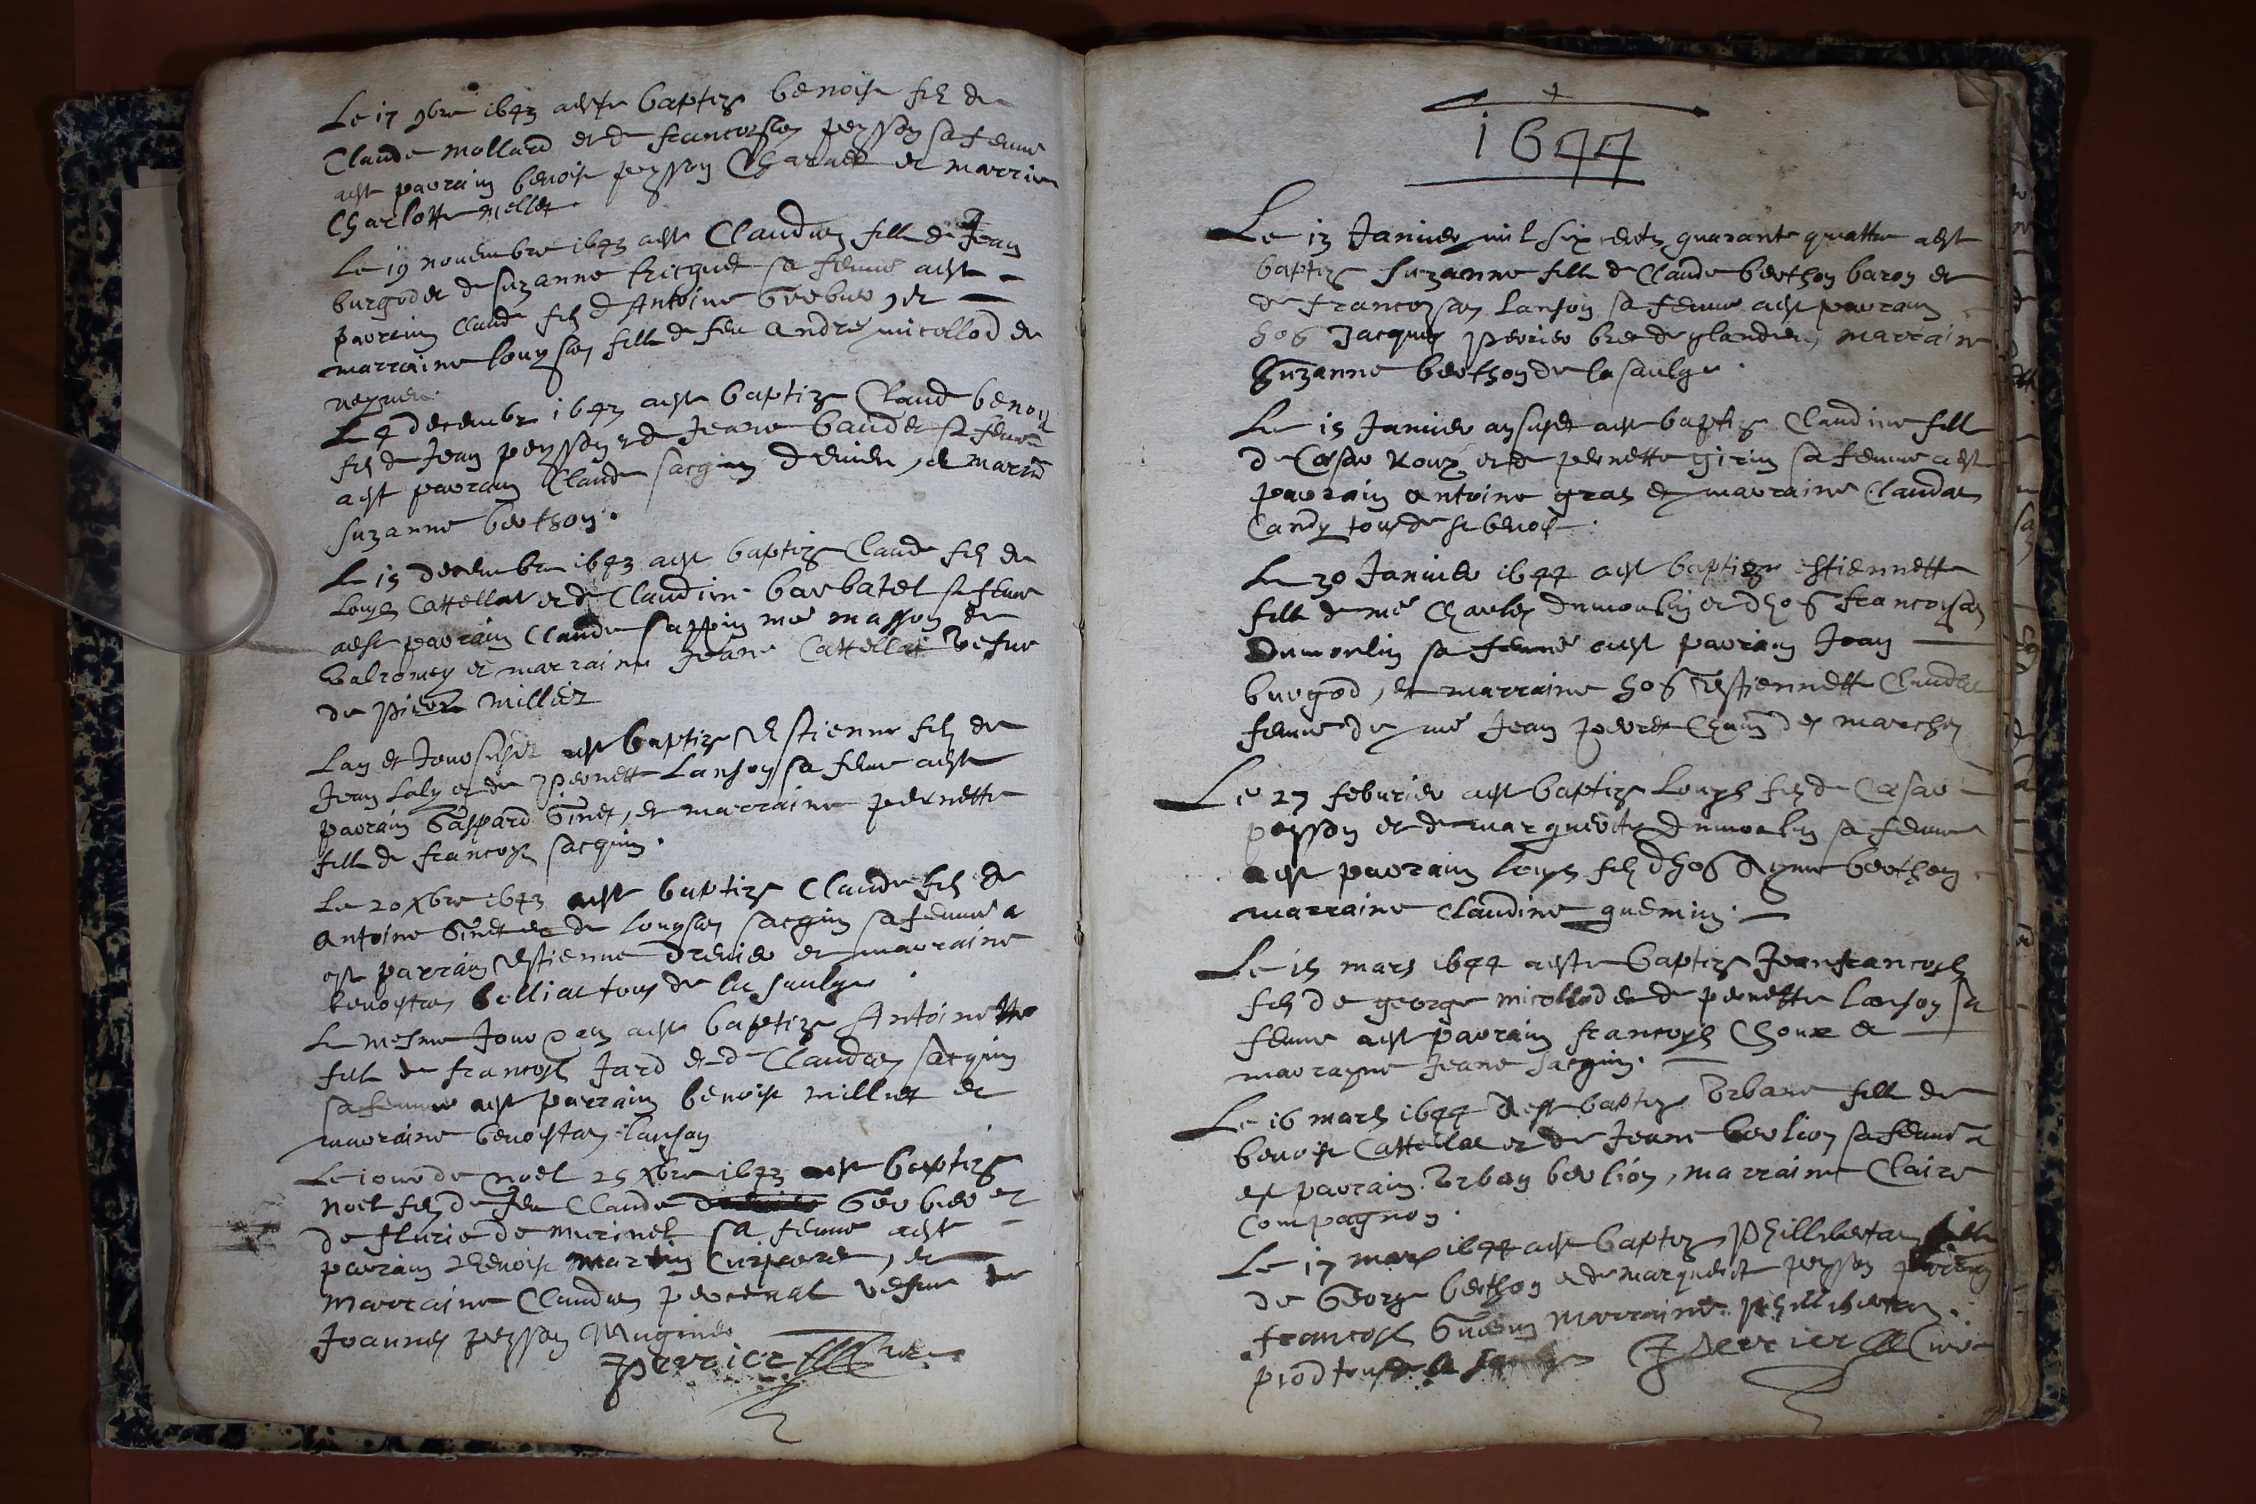 Le 17 9bre 1643 aeste baptize benoist filz de
Claude mollard et de francoyse peysson sa femme
aest parrain benoist peysson Charnet et marrine
Charlotte mellet
Le 19 nouembre 1643 aest Claudine fille de Jean
burgod et de suzanne sa femme aest
parrain Claude filz d Antoine Gerbier, et
marraine louyse fille de feu andre micollod de
Le 4 decembre 1643 aest baptize Claude benoist
filz de Jean peysson et de Jeane baudet sa femme
aest parrain Claude sacquin et marrine
suzanne berthon.
Le 15 decembre 1643 aest baptize Claude filz de
Louys Cattellat et de Claudine barbatel sa femme
aest parrain Claude sappin me masson de
Valromey et marraine Jeane Cattellat vefue
de pierre millier
Lan et Jour susdit aest baptize Estienne filz de
Jean Laly et de pernette Lanson sa femme aest
parrain Gaspard Ginet, et marraine pernette
fille de francoys sacquin.
Le 20 Xbre 1643 aest baptize Claude filz de
antoine Ginet et de Louyse sacquin sa femme a
est parrain Estienne et marraine
benoiste belliat tous de la saulge
Le mesme Jour aest baptize Antoinette
fille de francoys Jard et de Claudine sacquin
sa femme aest parrain benoist milliet et
marraine benoiste Lanson
Le iour de noel 25 Xbre 1643 aest baptize
noel filz de feu Claude Gerbier et
de flurie de murinel sa femme aest
parrain benoist martin et
marraine Claudine percenat vefue de
Joannes peysson Mugnier
perrier Cure
1644
Le 13 Januier mil six centz quarante quattre aest
baptize suzanne fille de Claude berthon baron et
de francoyse Lanson sa femme aest parrain
hos Jacques perrier marraine
Suzanne berthon de la saulge.
Le 15 Januier an susdit aest baptize Claudine fille
de Cesar Roux et de pernette girin sa femme aest
parrain antoine gras et marraine Claudine
Candy tous de st benoist.
Le 30 Januier 1644 aest baptize estiennette
fille de me Charles dumoulin et d hos francoyse
Dumoulin sa femme aest parrain Jean
burgod, et marraine hos Estiennette
femme de me Jean perret des marches
Le 27 feburier aest baptize Louys filz de Cesar
peysson et de marguerite dumoulin sa femme
aest parrain louys filz d hos Ayme berthon
marraine Claudine guemin.
Le 15 mars 1644 aeste baptize Jeanfrancoys
filz de george micollod et de pernette Lanson sa
femme aest parrain francoys Choux et
marrayne Jeane sacquin.
Le 16 mars 1644 aest baptize Vrbane fille de
benoist Cattellat et de Jeane berlion sa femme a
est parrain Vrban berlion, marraine Claire
Compagnon.
Le 17 mars 1644 aest baptize phillibertae fille
de George berthon et de marguerite peysson parrain
francoys marraine phillibertae
piod tous de la saulge Perrier Cure